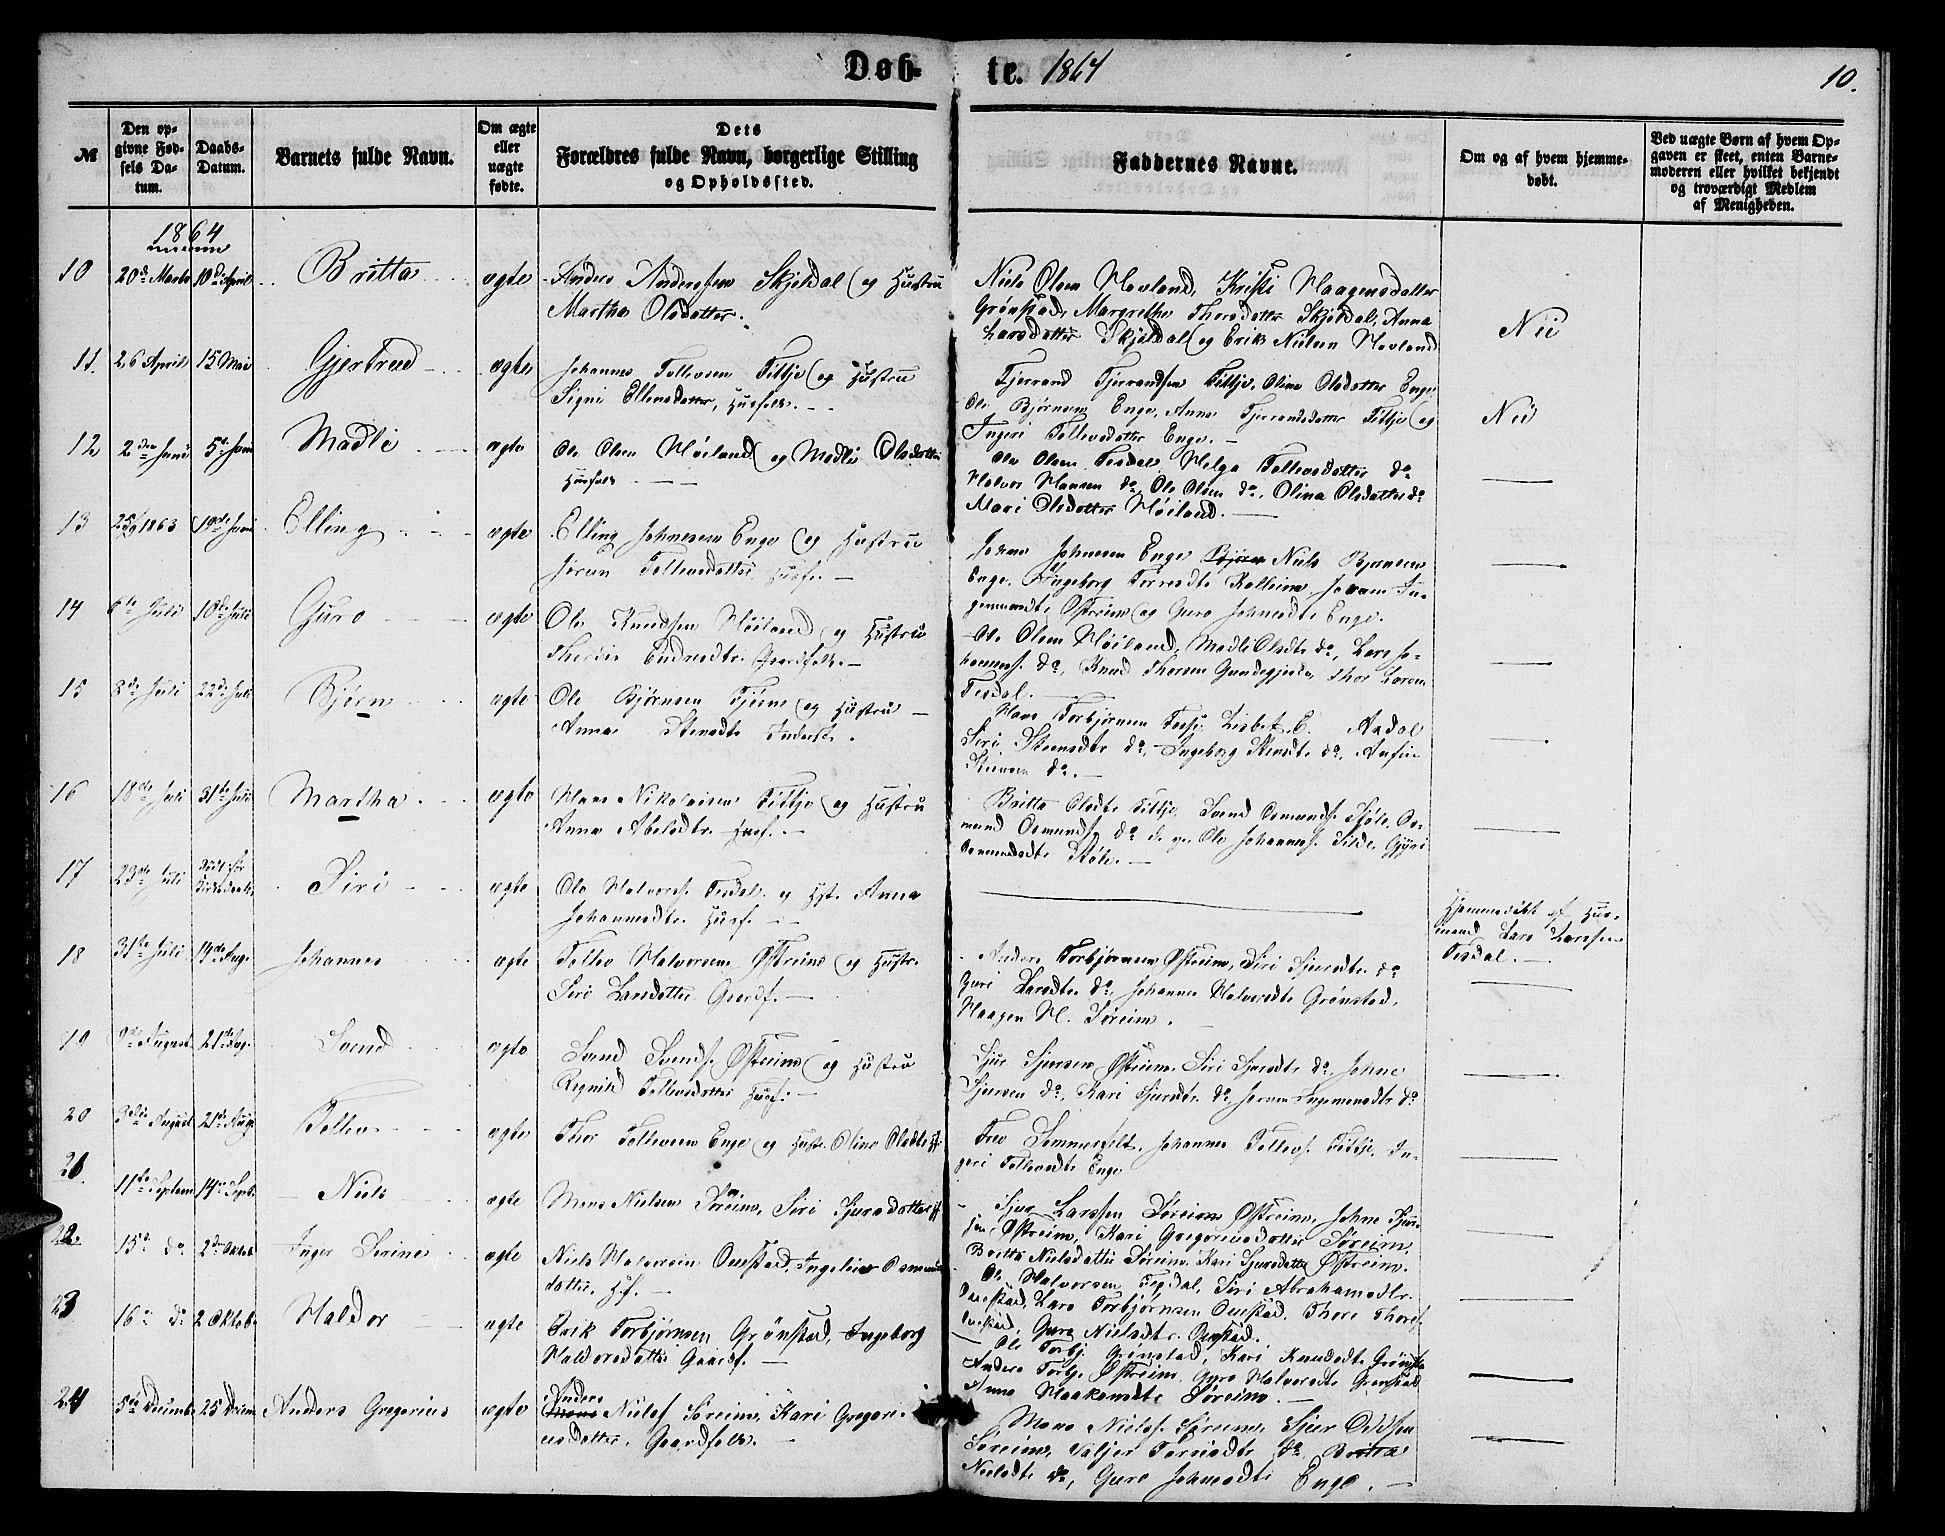 Døb-
te. 1864
10.
№
Den op-
givne Fød-
sels Da-
tum.
Daabs-
Datum.
Barnets fulde Navn.
Om ægte
eller
uægte
fødte.
Dets
Forældres fulde Navn, borgerlige Stilling
og Opholdssted.
Faddernes Navne.
Om og af hvem hjemme-
døbt.
Ved uægte Børn af hvem Op-
gaven er skeet, enten Barne-
moderen eller hvilket bekjendt
og troværdigt Medlem
af Menigheden.
1864
10 20de Marts 10de April Britta ægte Anders Anderssen Skjeldal og Hustru
Martha Olsdatter.
Niels Olsen Hovland, Kristi Haagensdatter
Grønstad, Margrethe Thorsdatter Skjeldal, Anna
Larsdatter Skjeldal og Erik Nielsen Hovland
Nei
11. 26 April 15 Mai Gjertrud ægte Johannes Tollevsen Tittje og Hustru
Signi Ellensdatter, Husfolk.
Tjerrand Tjerrandsen Tittje, Oline Olsdatter Enge
Ole Bjørnsen Enge, Anna Tjerrandsdatter Tittje og
Ingeri Tollevsdatter Enge.
Nei
12 2den Juni 5te Juni Madli ægte Ole Olsen Høiland og Madli Olsdatter
Husfolk
Ole Olsen Tesdal, Helga Tollevsdatter do
Halvor Hansen do, Ole Olsen do, Olina Olsdatter do
Mari Olsdatter Høiland.
13 1863 19de Juni Elling ægte Elling Johnesen Enge og Hustru
Jorun Tollevsdatter Husf.
Johnesen Enge Bjørn Niels Bjørnsen
Enge, Ingeborg
Østreim og Guro Johnesdt. Enge.
14 6te Juli 10de Juli Guro ægte Ole Knudsen Høiland og Hustru
Gaardfolk.
Ole Olsen Høiland, Madli Olsdt. do, Lars Jo-
hanness. do, Knud Thorsen
Tesdal.
15 8de Juli 22de Juli Bjørn ægte Ole Bjørnsen og Hustru
Anna Stensdt.
Hans Torbjørnsen Lisbet E. Aadal
Siri Steensdtr do, Ingeborg Stensdt. do,
Steensen do.
16 18de Juli 31te Juli Martha ægte Hans Nikolaisen Tittje og Hustru
Anna Abelsdtr. Husf.
Britta Olsdt. Tittje, Svend Osmunds. Støle, Os-
mund Osmunds. do d. y. Ole Johanness.
Osmundsdt. Støle.
17 29de Juli Siri ægte Ole Halvors. Tesdal og Hst. Anna
Johannesdtr. Husf.
Hjemmedøbt af Hus-
mand Lars Larssen
Tesdal.
18 31te Juli 14de Aug. Johannes ægte Tollev Halvorsen Østreim og Hustr.
Siri Larsdatter Gaardf.
Anders Torbjørnsen Østreim, Siri Sjursdt. do
Guri Larsdtr. do, Johannes Halvorsdt. Grønstad,
Haagen H. Søreim.
19 9de August 21de Aug. Svend ægte Svend Svends. Østreim og Hustru
Tollevsdatter Husf.
Sjur Sjursen Østreim, Siri Sjursdt. do, Johne
Sjursen do, Kari Sjursdt. do,
20 3die August 21de Aug. Tollev ægte Thor Tollevsen Enge og Hustr. Oline Olsdt. Hf.
Sommerfelt, Johannes Tollevs. Tittje, In-
geri Tollevsdt. Enge
21. 11te Septem 14de Septb. Niels ægte Mons Nielsen Søreim, Siri Sjursdatter Hf
Sjur Larssen Søreim Østreim, Johne Sjur-
sen Østreim, Kari Gregoriusdatter Søreim,
Britta Nielsdatter Søreim, Kari Sjursdatter Østreim.
22. 15de do 2den Oktob Inger Serine ægte Niels Halvorsen Ouestad, Osmunds-
datter, Hf.
Ole Halvorsen Tesdal, Siri Abrahamsdtr.
Ouestad, Lars Torbjørnsen Ouestad, Thore Thors.
Ouestad, Guro Nielsdtr. Ouestad.
23 16de do 2 Oktob. Haldor ægte Erik Torbjørnsen Grønstad, Ingeborg
Haldorsdatter Gaardf.
Ole Torbj. Grønstad, Kari Knudsdt. Grønsta
Anders Torbj. Østreim, Guro Halvorsdt. Grønstad
Anna Haakensdt. Søreim.
24 5te Decemb. 25 Decem. Anders Gregorius ægte Anders
Mons Niels. Søreim, Kari Gregori-
usdatter. Gaardfolk.
Mons Niels. Søreim, Sjur Oddsen
Søreim, do Britta
Nielsdt. do, Guro Johnesdt. Enge.